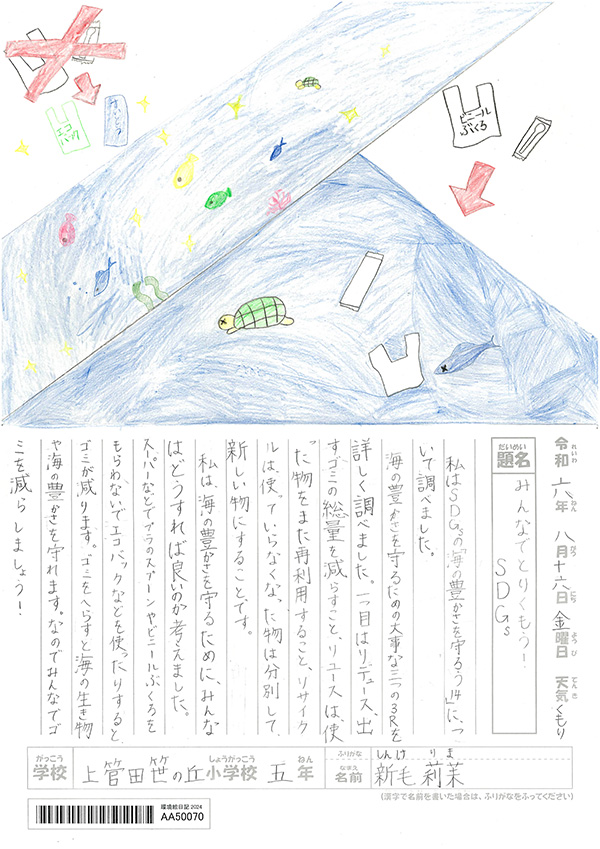 エコバック
ビニールぶくろ
令和六年八月十六日金曜日天気くもり
れいわ ねん がつ にち ようび てんき
題名
だいめい
みんなでとりくもう!
SDGs
私はSDGsの「海の豊かさを守ろう14」に、つ
いて調べました。
海の豊かさを守るための大事な三つの3Rを
詳しく調べました。一つ目はリデュース、出
すゴミの総量を減らすこと、リユースは、使
った物をまた再利用すること、リサイク
ルは使っていらなくなった物は分別して、
新しい物にすることです。
私は、海の豊かさを守るために、みんな
はどうすれば良いのか考えました。
スーパーなどでプラのスプーンやビニールぶくろを
もらわないでエコバックなどを使ったりすると、
ゴミが減ります。ゴミをへらすと海の生き物
や海の豊かさを守れます。なのでみんなでゴ
ミを減らしましょう!
がっこう しょうがっこう ねん
学校 上菅田笹の丘小学校 五年
ふりがな しんけ りま
なまえ
名前 新毛 莉茉
(漢字で名前を書いた場合は、ふりがなをふってください)
環境絵日記 2024
AA50070